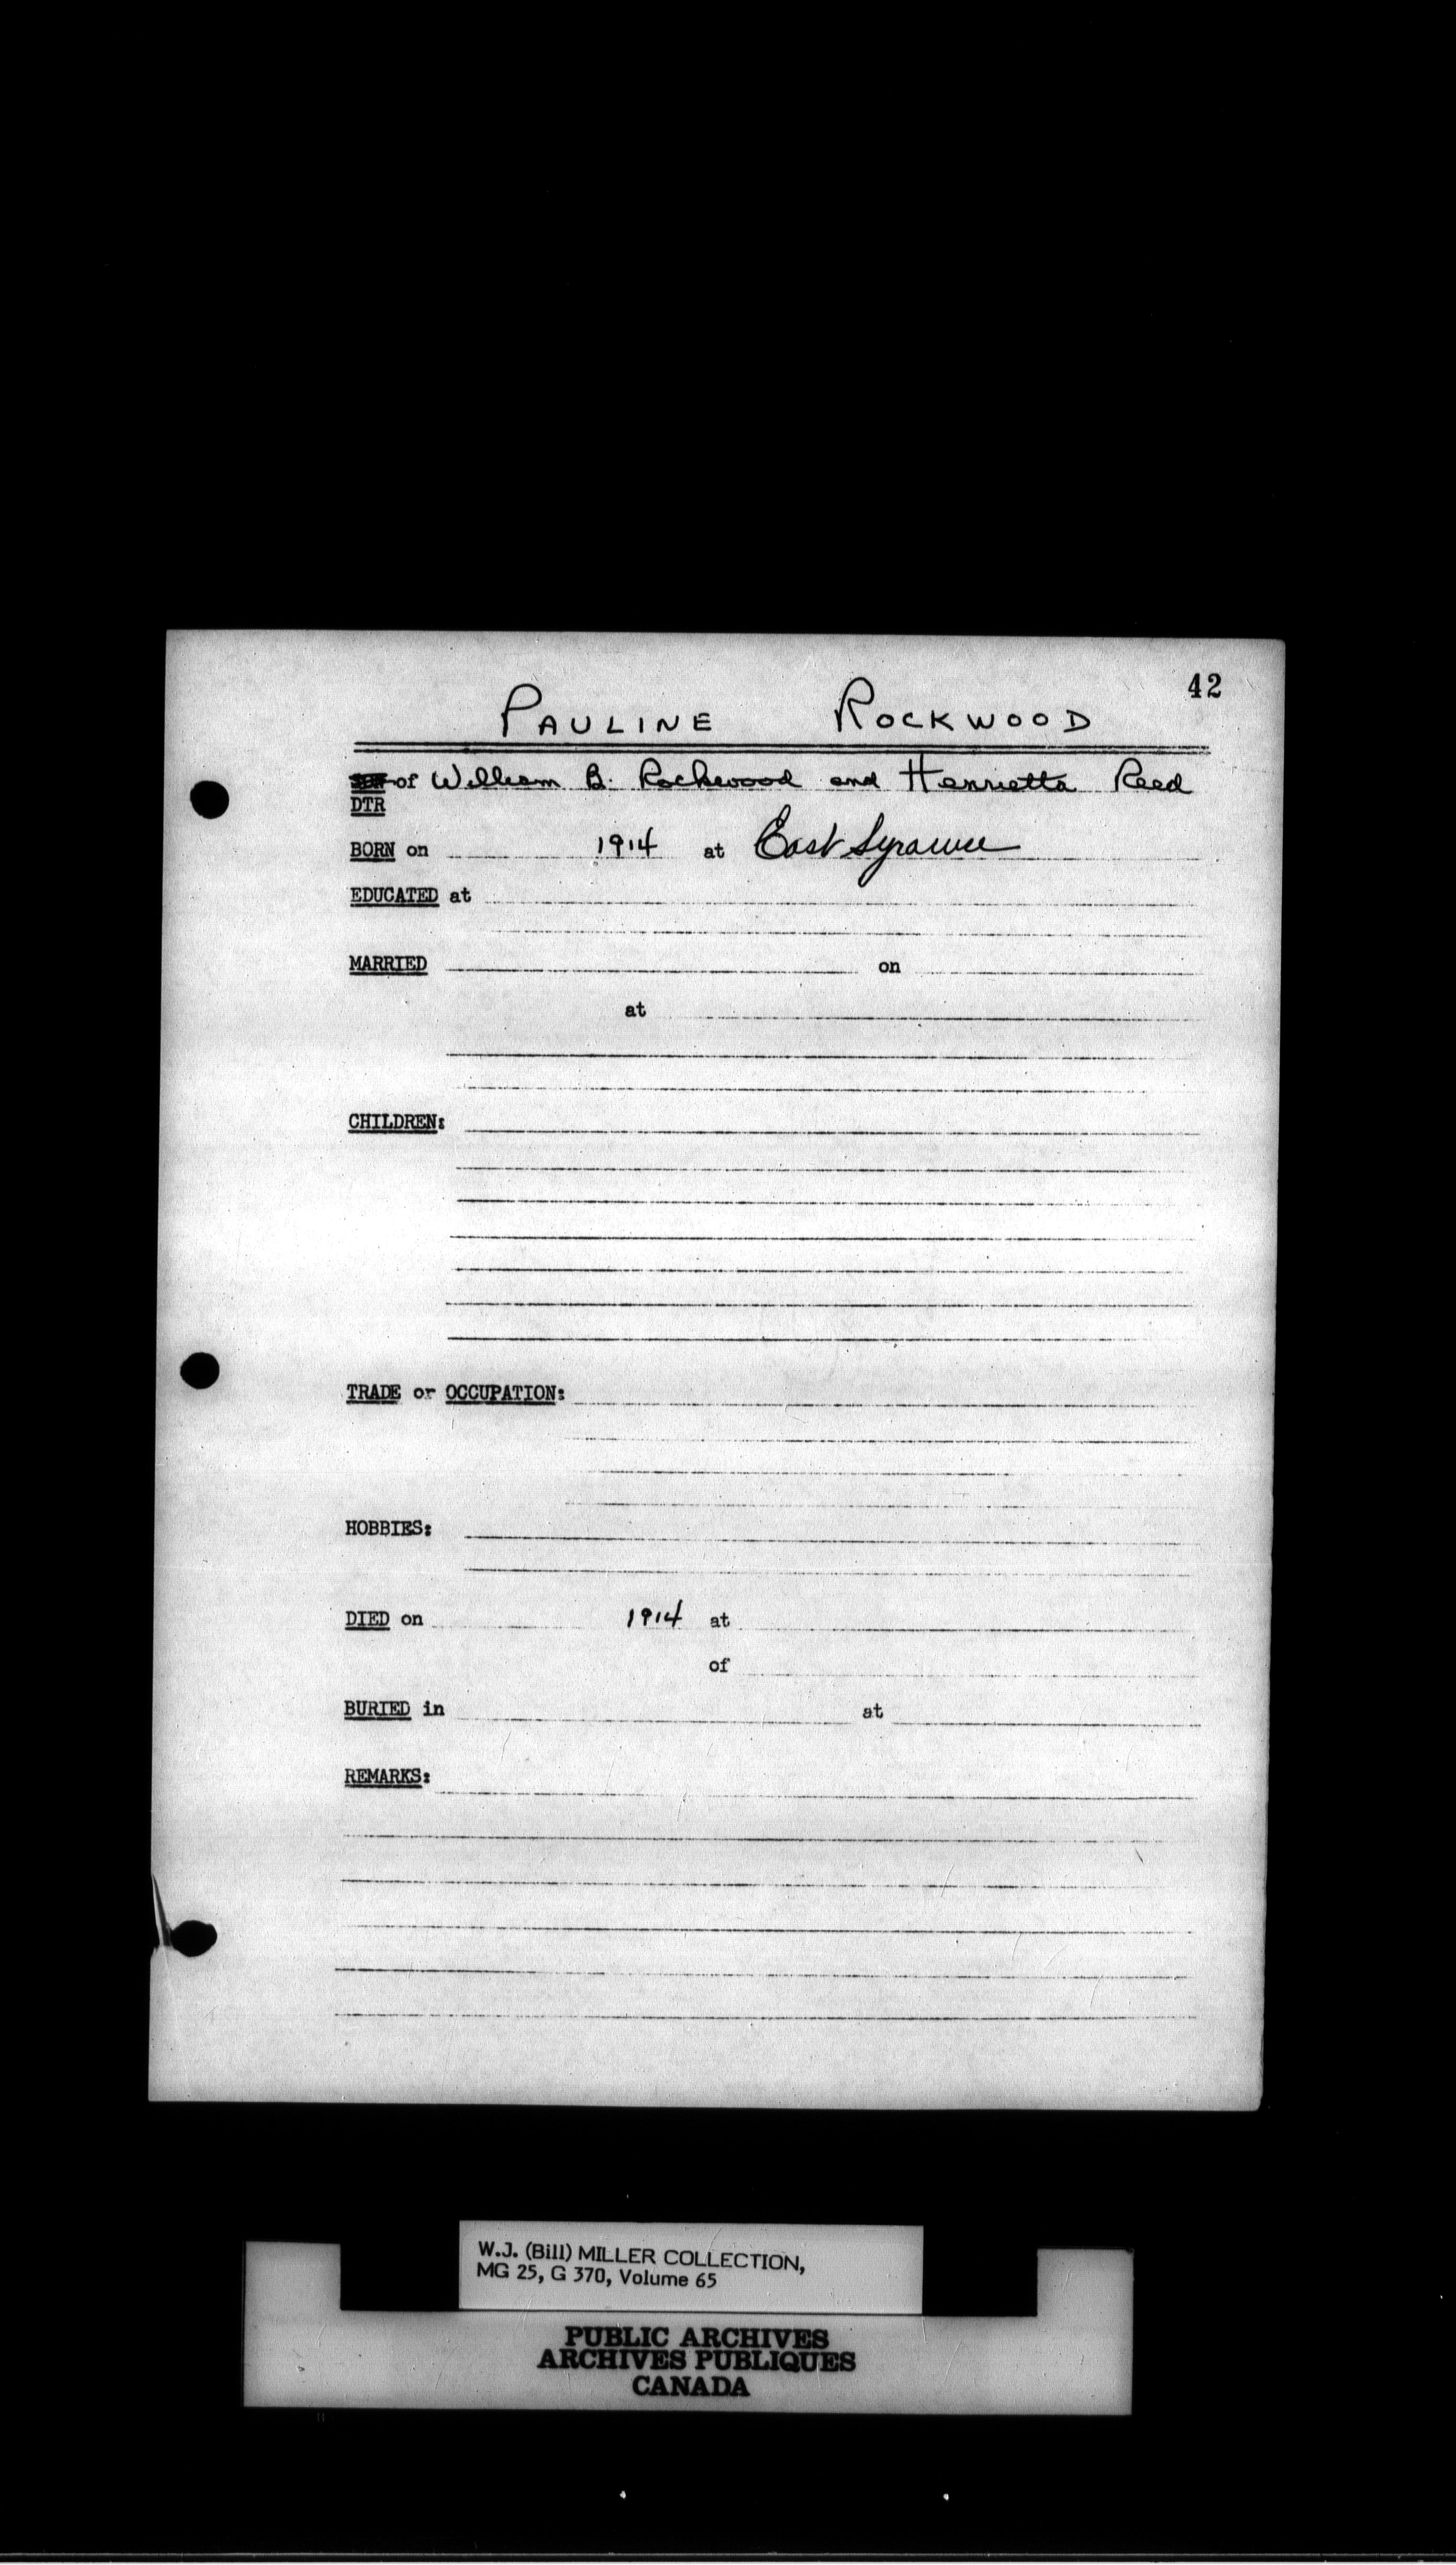 42
PAULINE ROCKWOOD
of William B. Rockwood and Henrietta Reed
DTR
BORN on 1914 at East Syracuse
EDUCATED at
MARRIED on
at
CHILDREN:
TRADE or OCCUPATION:
HOBBIES:
DIED on 1914 at
of
BURIED in at
REMARKS:
W.J. (Bill) MILLER COLLECTION,
MG 25, G 370, Volume 65
PUBLIC ARCHIVES
ARCHIVES PUBLIQUES
CANADA